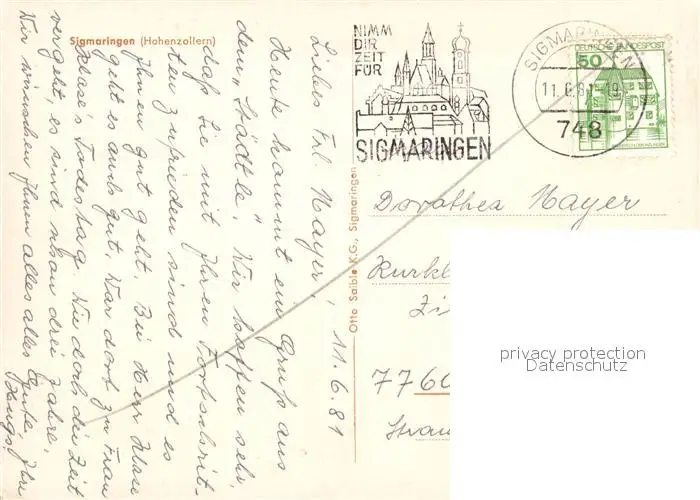 Sigmaringen (Hohenzollern)
11.6.81
Liebes Frl. Mayer!
Heute kommt ein Gruß aus
dem "Städtle". Wir hoffen sehr,
daß Sie mit Ihren Fortschrit-
ten zufrieden sind und es
Ihnen gut geht. Bei Herr
geht es auch gut. War dort zu Frau
Todestag. Wie doch die Zeit
vergeht, es sind schon drei Jahre.
Wir wünschen Ihnen alles alles Gute. Ihr
Otto Saible K.G., Sigmaringen
NIMM
DIR
ZEIT
FÜR
SIGMARINGEN
SIGMARINGEN
11.6.81-19
748
DEUTSCHE BUNDESPOST
50
Dorothea Mayer
776
privacy protection
Datenschutz